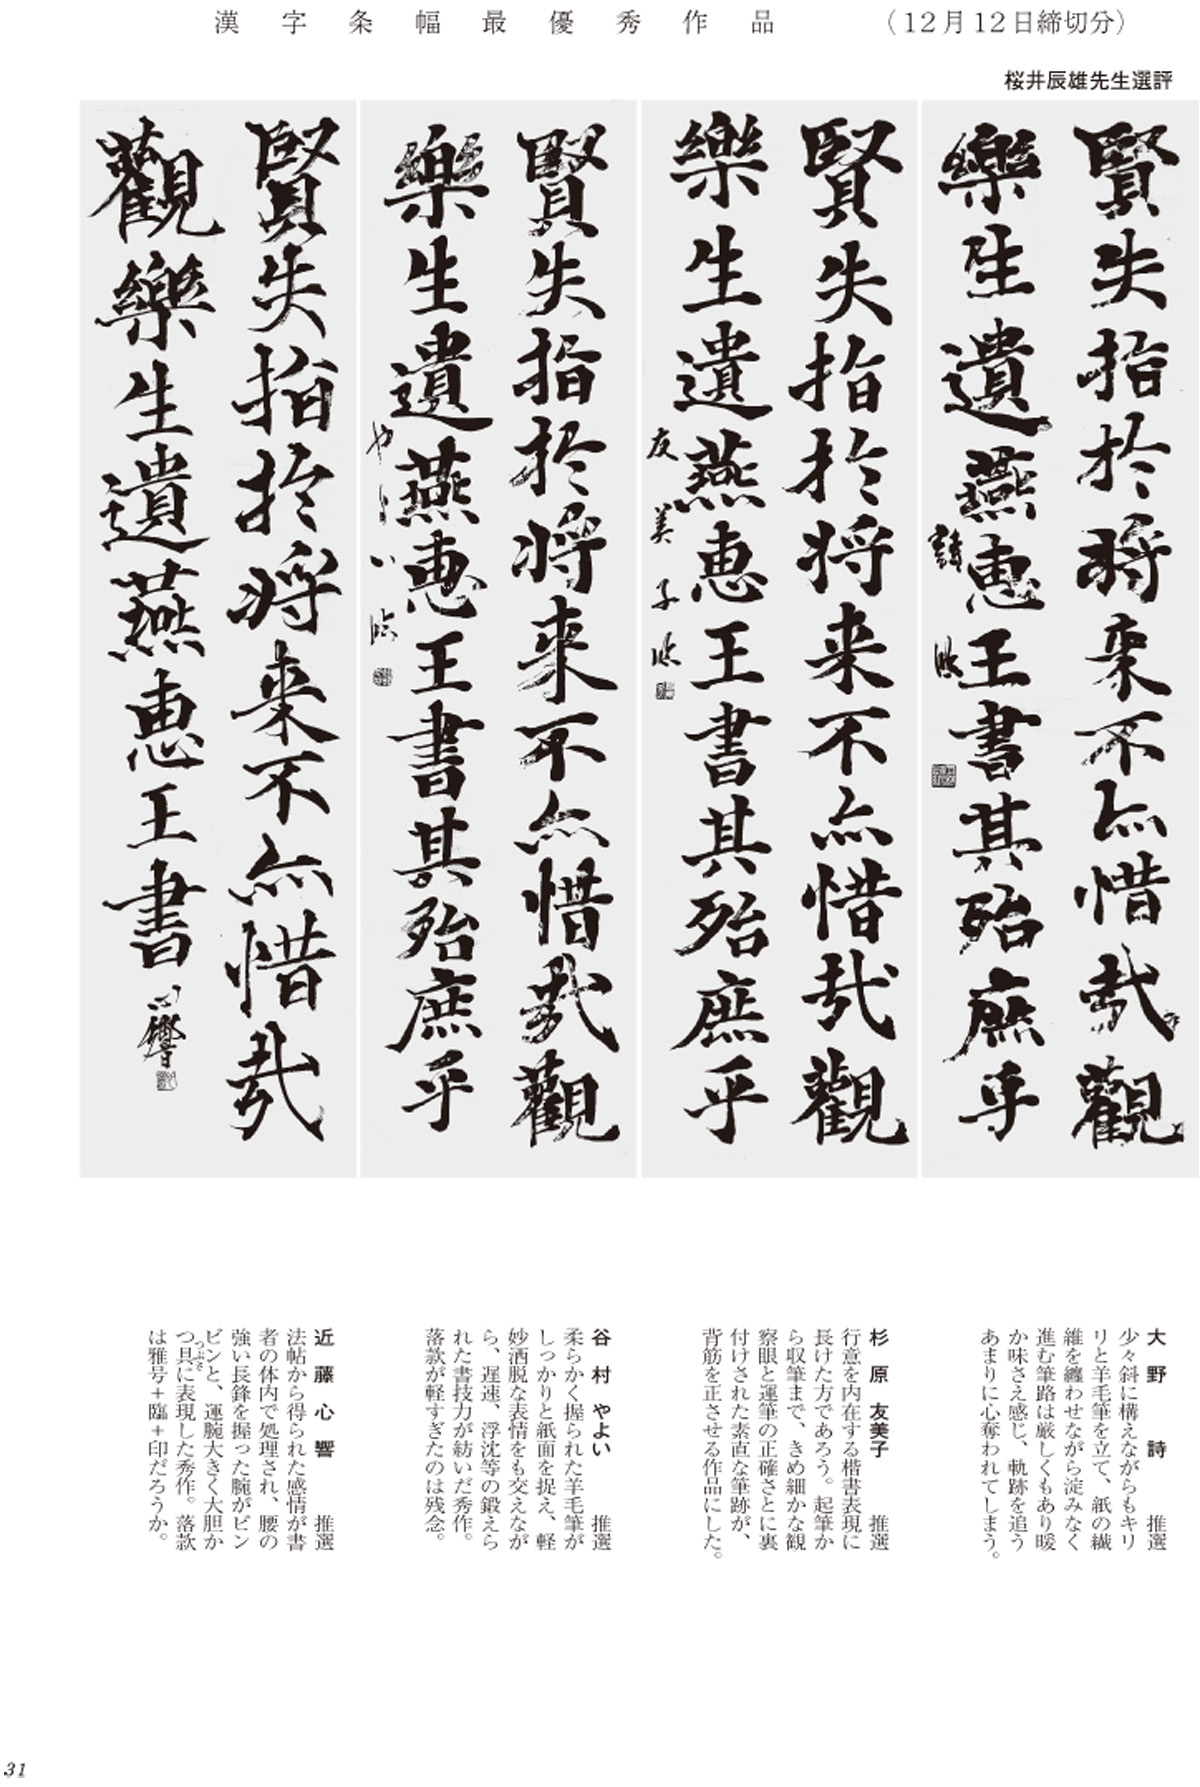 漢字条幅最優秀作品　（12月12日締切分）
桜井辰雄先生選評
賢失指於将来不亦惜哉觀
樂生遺燕惠王書其殆庶乎
詩臨
賢失指於将来不亦惜哉觀
樂生遺燕惠王書其殆庶乎
友美子臨
賢失指於将来不亦惜哉觀
樂生遺燕惠王書其殆庶乎
やよい臨
賢失指於将来不亦惜哉
觀樂生遺燕惠王書
心響
大野　詩　推選
少々斜に構えながらもキリ
リと羊毛筆を立て、紙の繊
維を纏わせながら淀みなく
進む筆路は厳しくもあり暖
か味さえ感じ、軌跡を追う
あまりに心奪われてしまう。
杉原　友美子　推選
行意を内在する楷書表現に
長けた方であろう。起筆か
ら収筆まで、きめ細かな観
察眼と運筆の正確さとに裏
付けされた素直な筆跡が、
背筋を正させる作品にした。
谷村　やよい　推選
柔らかく握られた羊毛筆が
しっかりと紙面を捉え、軽
妙洒脱な表情をも交えなが
ら、遅速、浮沈等の鍛えら
れた書技力が紡いだ秀作。
落款が軽すぎたのは残念。
近藤　心響　推選
法帖から得られた感情が書
者の体内で処理され、腰の
強い長鋒を握った腕がビン
ビンと、運腕大きく大胆か
つ具につぶさ表現した秀作。落款
は雅号＋臨＋印だろうか。
31